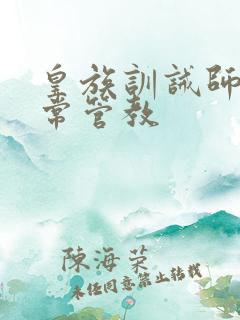 皇族訓誡師日
常管教
陳海菜
未经同意禁止转载